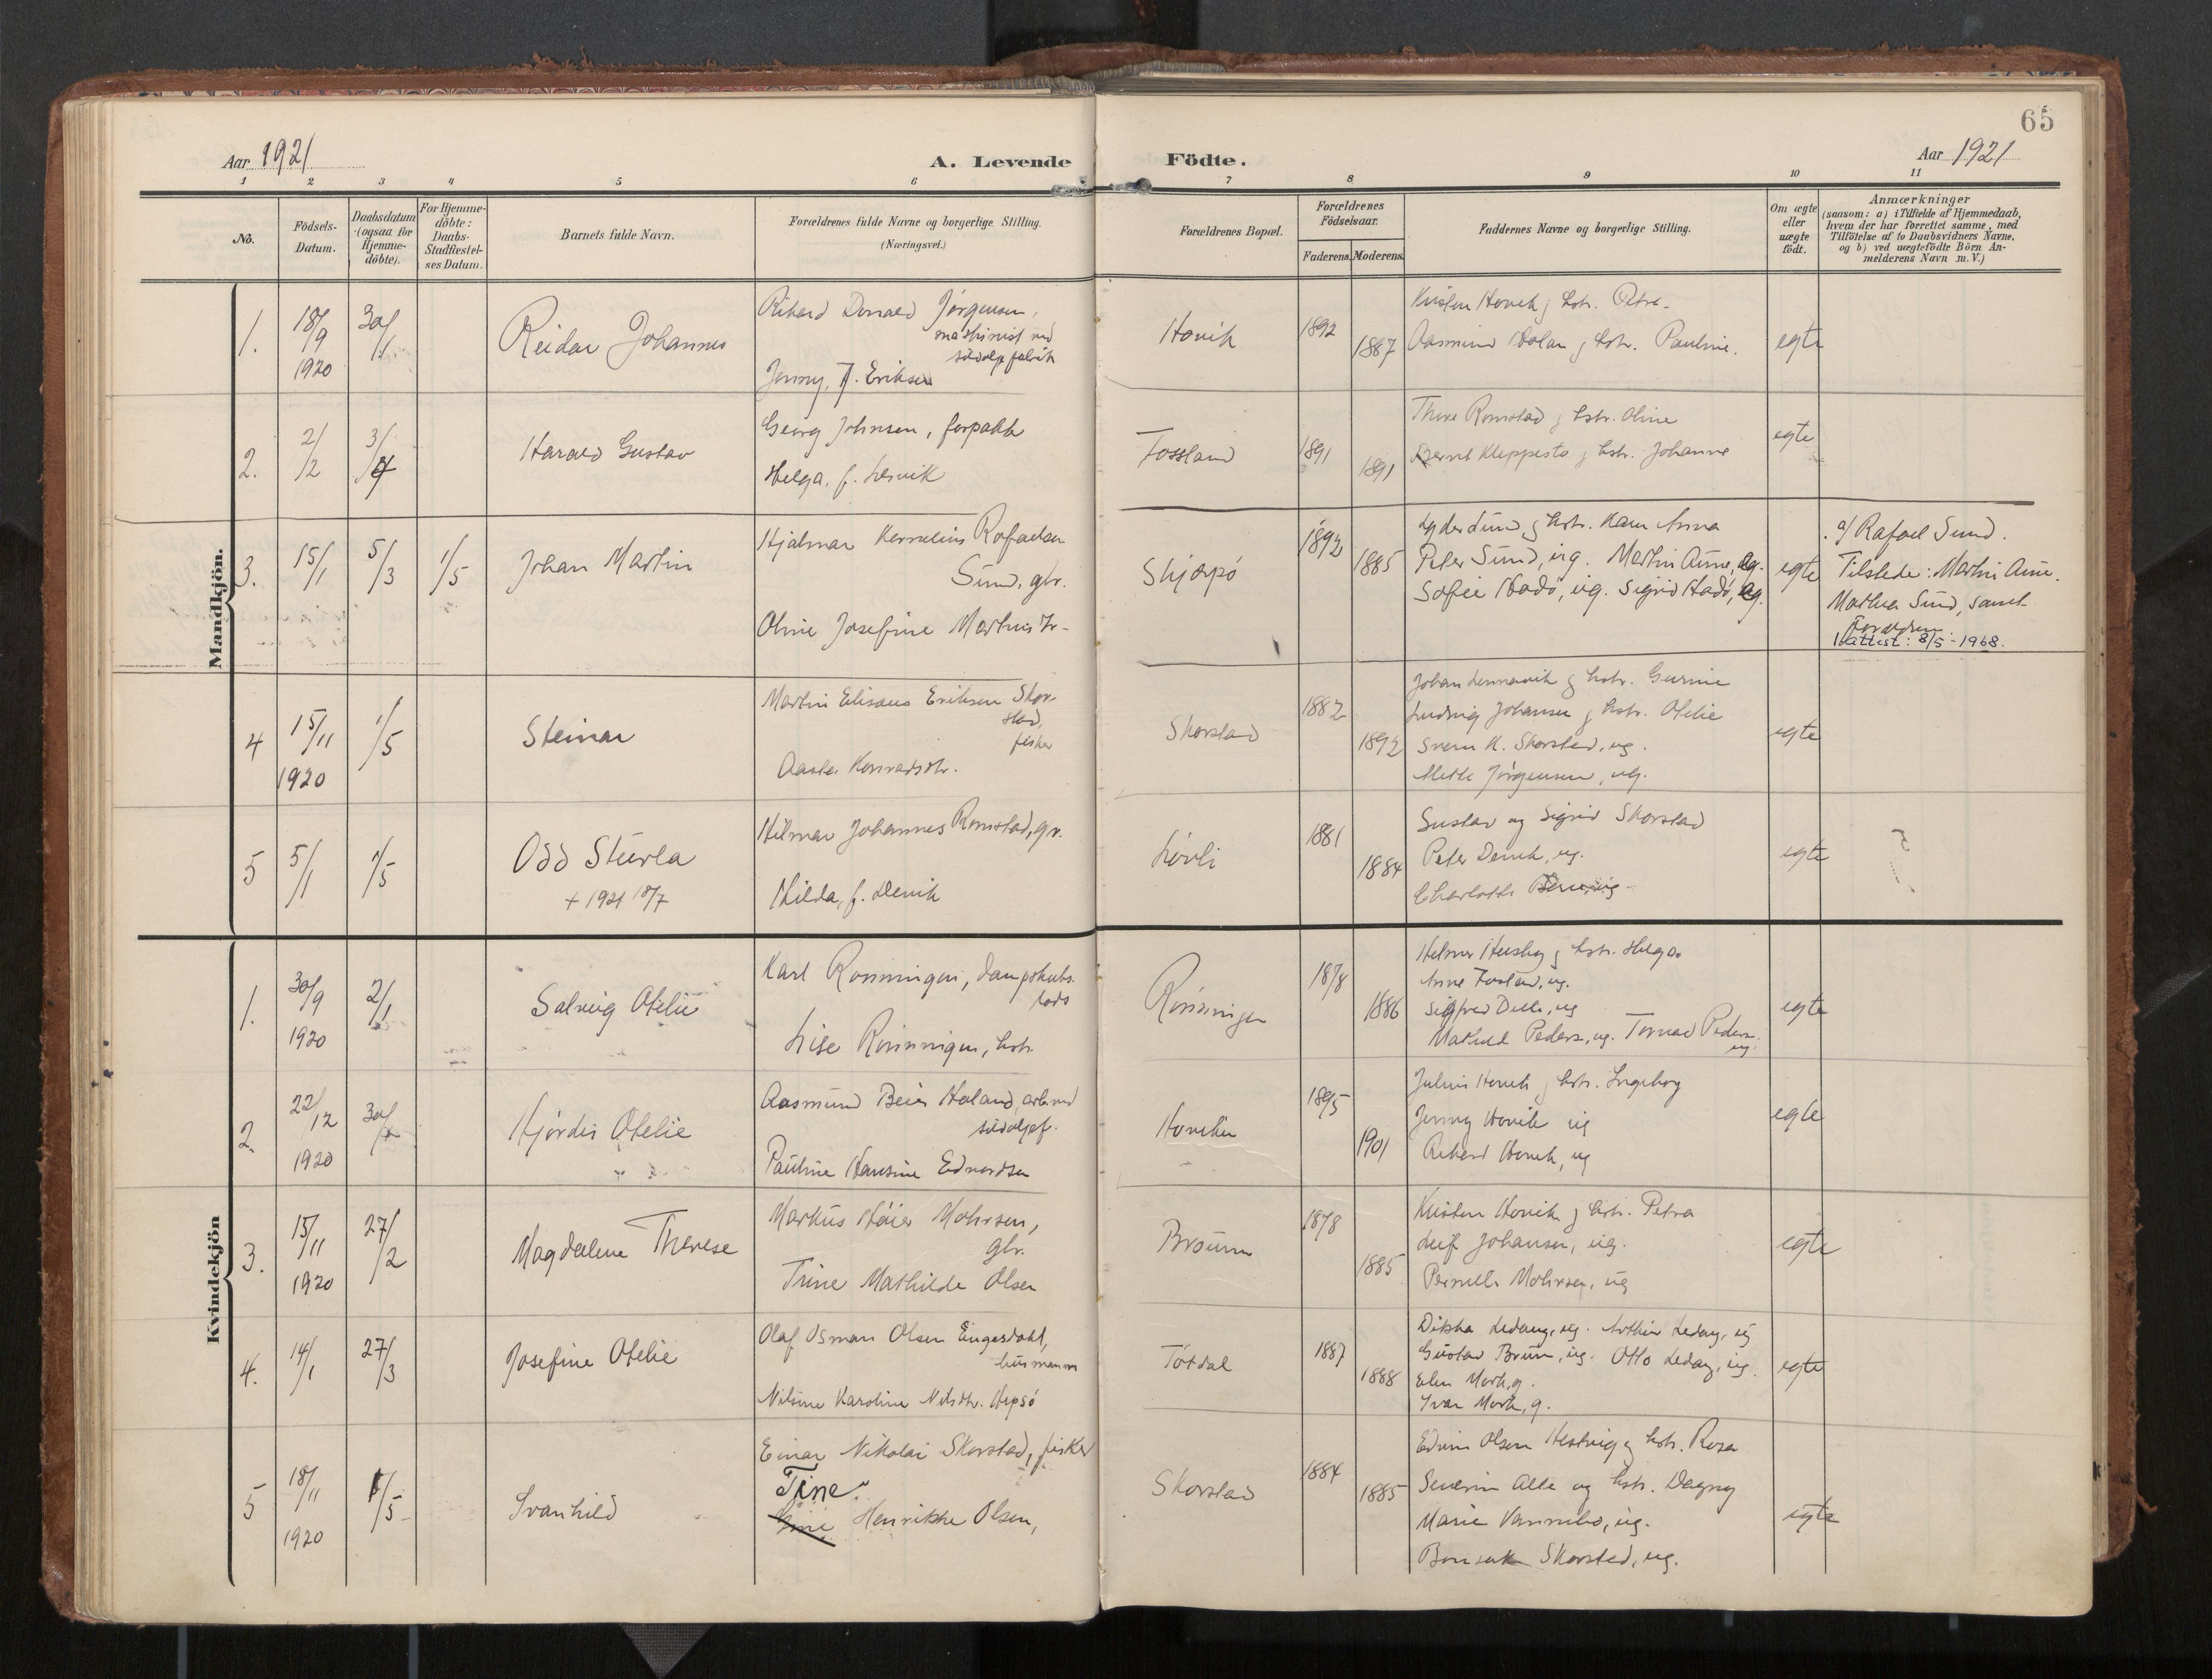 65
Aar 1921
A. Levende Födte.
Aar 1921
1 2 3 4 5 6 7 8 9 10 11
No.
Födsels-Datum.
Daabsdatum (ogsaa for Hjemme-döbte).
For Hjemme-döbte: Daabs-Stadfæstel-ses Datum.
Barnets fulde Navn.
Forældrenes fulde Navne og borgerlige Stilling.
(Næringsvei.)
Forældrenes Bopæl.
Forældrenes Födselsaar.
Faderens. Moderens.
Faddernes Navne og borgerlige Stilling.
Om ægte eller uægte födt.
Anmærkninger
(saasom: a) i Tilfælde af Hjemmedaab,
hvem der har forrettet samme, med
Tilföielse af to Daabsvidners Navne,
og b) ved uægtefödte Börn An-
melderens Navn m. V.)
Mandkjön.
1. 18/9 1920 30/1 Reidar Johannes
Rikard Jørgensen,
maskinist ved
sildoljefabrik
Jenny, f. Eriksen
Hovik 1892 1887
Kristen Hovik, hstr. Petra.
Aasmund, hstr. Pauline.
egte
2. 2/2 3/4 Harald Gustav
Georg Johnsen, forpakter
Helga, f. Lervik
Fossland 1891 1891
Thore Romstad, hstr. Oline
Bernt Kleppestø, hstr. Johanne
egte
3. 15/1 5/3 1/5 Johan Martin
Hjalmar Kornelius Rafaelsen
Sund, gbr.
Oline Josefine Martinsdtr
Skjærpø 1892 1885
hstr. Karen Anna
Peter Sund, ug. Martin Aune, ug.
Sofie Hadø, ug. Sigrid Hadø, ug.
egte
a/ Rafael Sund.
Tilstede: Martin Aune.
Mathea Sund, samt
Forældrene.
Dåbsattest: 8/5-1968.
4 15/11 1920 1/5 Steinar
Martin Elisæus Eriksen Skorstad,
fisker
Aasta Konradsdtr.
Skorstad 1882 1892
Johan Lennavik, hstr. Gurine
Ludvig Johansen, hstr. Otelie
Sverre K. Skorstad, ug.
Mette Jørgensen, ug.
egte
5 5/1 1/5 Odd Sturla
+ 1921 18/7
Hilmar Johannes Romstad, gbr.
Hilda, f. Dervik
Løvli 1881 1884
Gustav og Sigrid Skorstad
Peter, ug.
Charlotte
egte
Kvindekjön
1. 30/9 1920 2/1 Solveig Otelie
Karl Rønningen, dampskibs-
lods
Lise Rønningen, hstr.
Rønningen 1878 1886
Helmer Husby, hstr. Helga.
Anne, ug.
Sigfred, ug
Matilde Peders, ug. Tomas Peders
ug.
egte
2. 22/12 1920 30/1 Hjørdis Otelie
Aasmund Beier Holand, arb. ved
sildoljef.
Pauline Hansine Edvardsen
Hoviken 1895 1901
Julius Hovik, hstr. Ingeborg
Jenny Hovik ug
Rikard Hovik, ug
egte
3. 15/11 1920 27/2 Magdalene Therese
Markus Høier Mohrsen,
gbr.
Trine Mathilde Olsen
Brøum 1878 1885
Kristen Hovik, hstr. Petra
Leif Johansen, ug.
Pernelle Mohrsen, ug
egte
4. 14/1 27/3 Josefine Otelie
Olaf Osman Olsen Engesdahl,
husmann
Nilsine Karoline Nilsdtr. Hepsø
Tøtdal 1887 1888
Ledang, ug. Arthur Ledang, ug
Gustav Bruun, ug. Otto Ledang, ug.
Elen Mork, g.
Ivar Mork, g.
egte
5 18/11 1920 1/5 Svanhild
Einar Nikolai Skorstad, fisker
Tine
Henrikke Olsen,
Skorstad 1884 1885
Edvin Olsen Hestvig, hstr. Rosa
Severin Alte og hstr. Dagny
Marie Vannebo, ug.
Bonsak Skorstad, ug.
egte